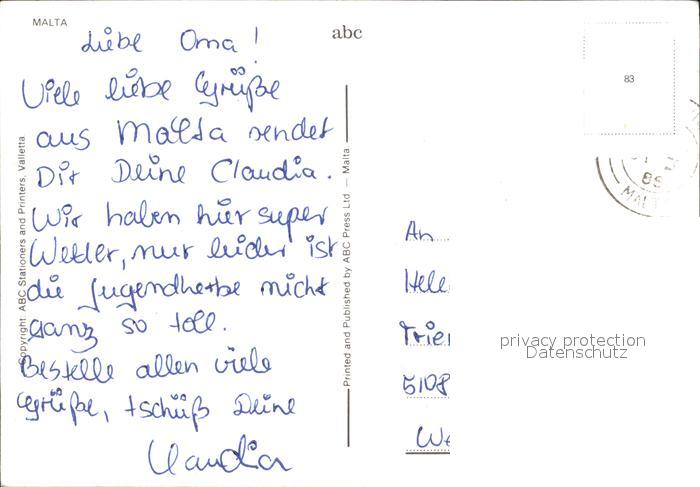 MALTA
abc
83
Liebe Oma!
Viele liebe Grüße
aus Malta sendet
Dir Deine Claudia.
Wir haben hier super
Wetter, nur leider ist
die Jugendherbe nicht
ganz so toll.
Bestelle allen viele
Grüße, tschüß Deine
Claudia
Copyright: ABC Stationers and Printers, Valletta
Printed and Published by ABC Press Ltd. — Malta
An
Hele
Trier
5108
We
privacy protection
Datenschutz
88
MALT